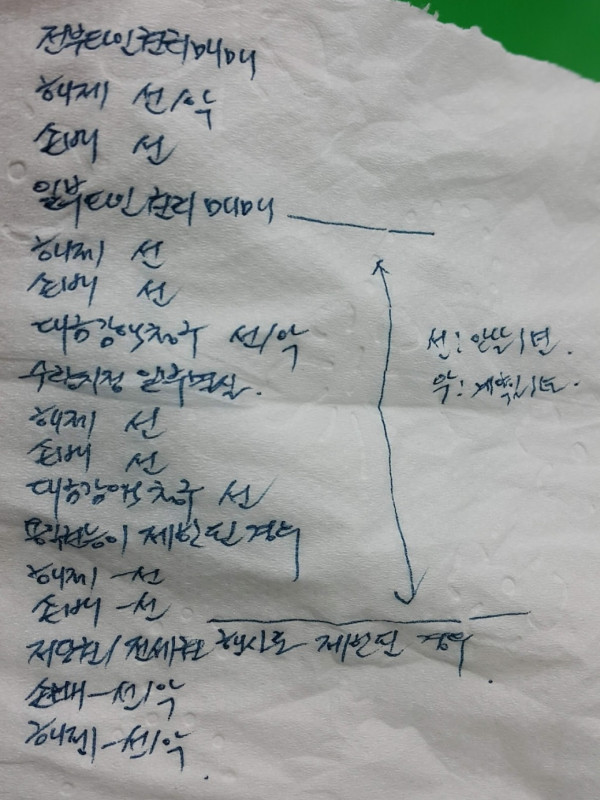 전부타인권리매매
해제 선/악
손배 선
일부타인권리매매
해제 선
손배 선
대금감액청구 선/악
수량지정 일부멸실.
해제 선
손배 선
대금감액청구 선
용익권능이 제한된 경우
해제 - 선
손배 - 선
저당권/전세권 행사로 제한된 경우.
손배 - 선/악
해제 - 선/악.
선: 안날 1년.
악: 계약 1년.